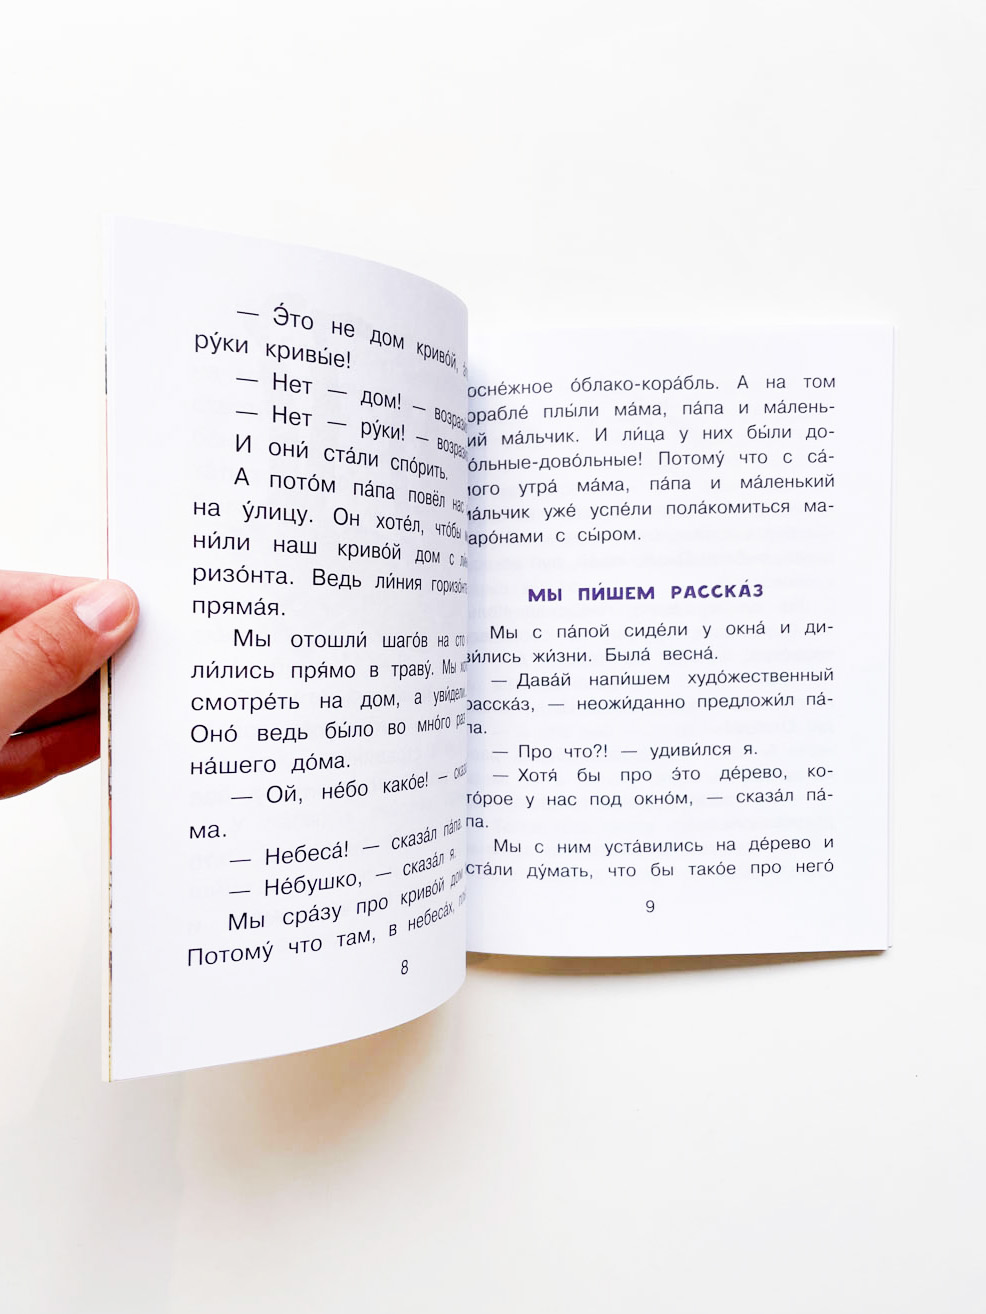 — Э́то не дом криво́й, а
ру́ки кривы́е!
— Нет — дом! — возрази
— Нет — ру́ки! — возрази
И они́ ста́ли спо́рить.
А пото́м па́па повёл нас
на у́лицу. Он хоте́л, что́бы
ни́ли наш криво́й дом с ли́н
ризо́нта. Ведь ли́ния горизо́нта
пряма́я.
Мы отошли́ шаго́в на сто
ли́лись пря́мо в траву́. Мы хоте
смотре́ть на дом, а уви́дели
Оно́ ведь бы́ло во мно́го раз
на́шего до́ма.
— Ой, не́бо како́е! — сказа
ма.
— Небеса́! — сказа́л па́па.
— Не́бушко, — сказа́л я.
Мы сра́зу про криво́й дом
Потому́ что там, в небеса́х, плы
8
осне́жное о́блако-кора́бль. А на том
орабле́ плы́ли ма́ма, па́па и ма́лень-
ий ма́льчик. И ли́ца у них бы́ли до-
о́льные-дово́льные! Потому́ что с са́-
мого утра́ ма́ма, па́па и ма́ленький
ма́льчик уже́ успе́ли пола́комиться ма-
аро́нами с сы́ром.
МЫ ПИ́ШЕМ РАССКА́З
Мы с па́пой сиде́ли у окна́ и ди-
ви́лись жи́зни. Была́ весна́.
— Дава́й напи́шем худо́жественный
расска́з, — неожи́данно предложи́л па́-
па.
— Про что?! — удиви́лся я.
— Хотя́ бы про э́то де́рево, ко-
то́рое у нас под окно́м, — сказа́л па́-
па.
Мы с ним уста́вились на де́рево и
ста́ли ду́мать, что бы тако́е про него́
9